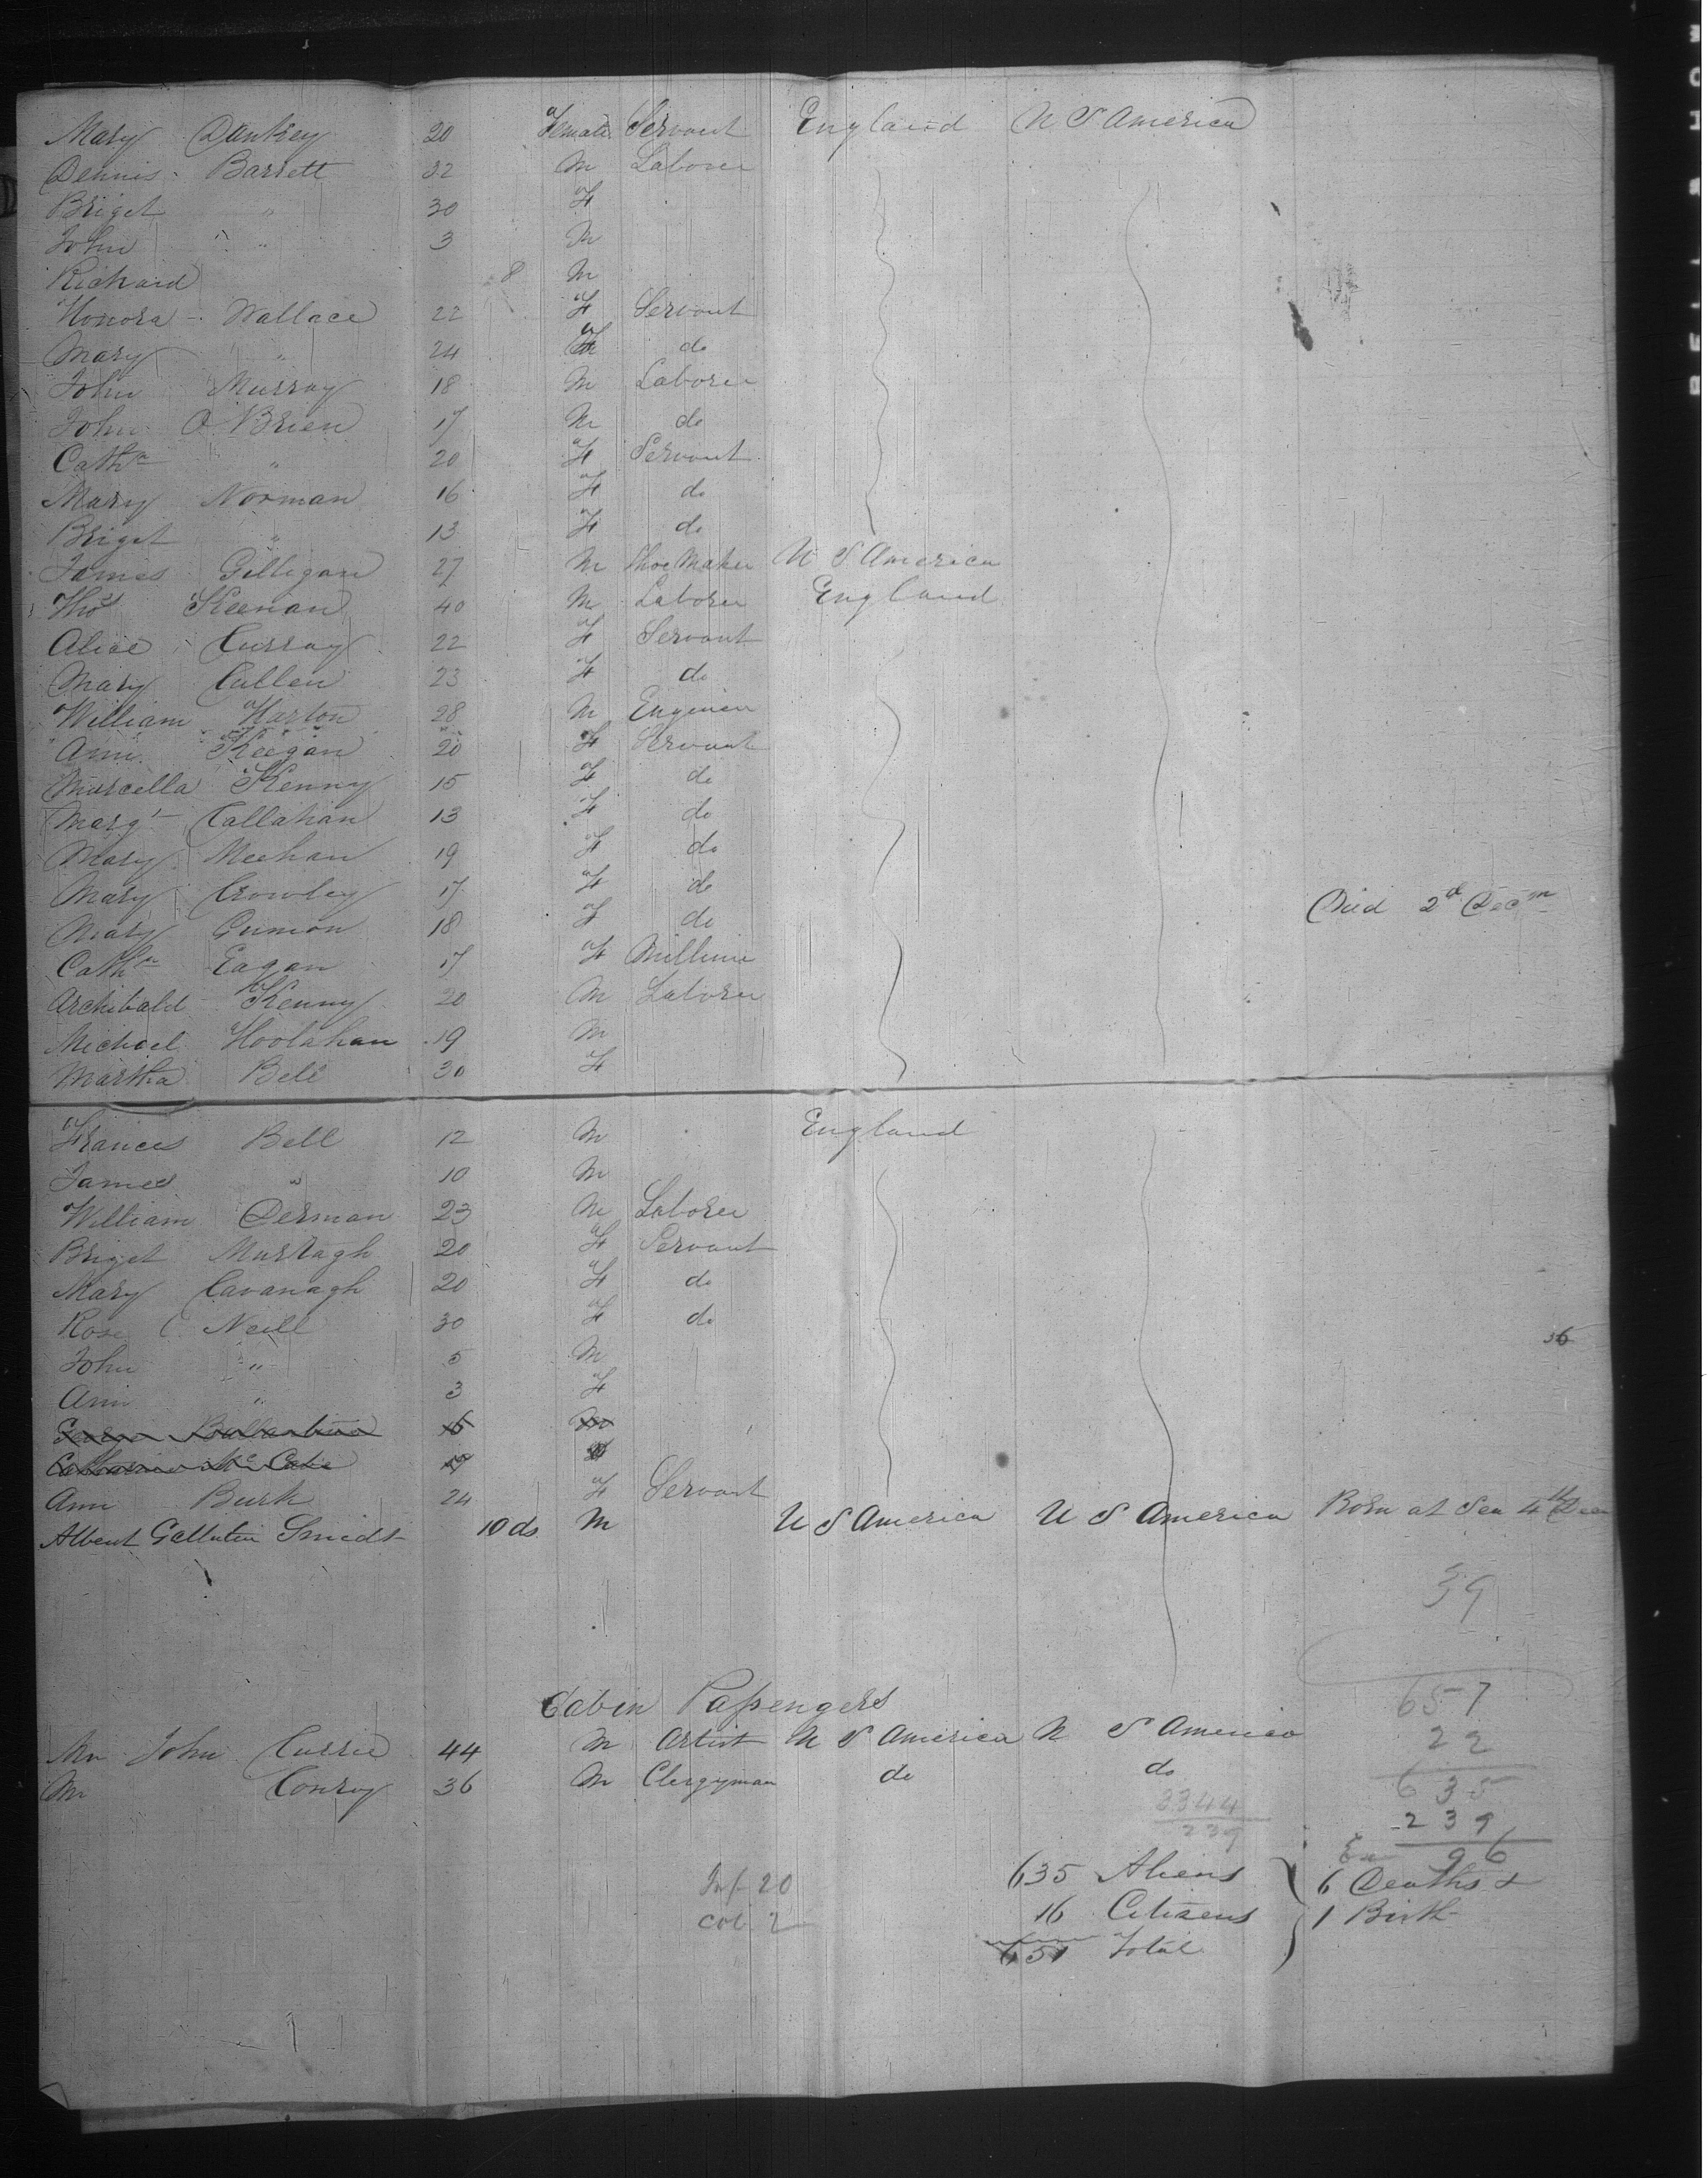 Mary Dankey 20 Female Servant England U S America
Dennis Barrett 32 M Laborer
Briget " 30 F
John " 3 M
Richard 8 M
Honora Wallace 22 F Servant
Mary " 24 F do
John Murray 18 M Laborer
John O Brien 17 M do
Cathe " 20 F Servant
Mary Norman 16 F do
Briget " 13 F do
James Gilligan 27 M Shoe Maker U S America
Thos Keenan 40 M Laborer England
Alice Curray 22 F Servant
Mary Cullen 23 F do
William Harton 28 M Engineer
Ann Keegan 20 F Servant
Marcella Kenny 15 F do
Margt Callahan 13 F do
Mary Meehan 19 F do
Mary Crowley 17 F do Died 2d Decm
Mary 18 F do
Cathe Eagan 17 F Milliner
Archibald Kenny 20 M Laborer
Michael Hoolahan 19 M
Martha Bell 30 F
Frances Bell 12 M England
James " 10 M
William Derman 23 M Laborer
Briget Murtagh 20 F Servant
Mary Cavanagh 20 F do
Rose O Neill 30 F do
John " 5 M
36
Ann " 3 F
Ballantine M
Catharine Mc
Ann Burk 24 F Servant
Albert Gallatin Smidt 10 ds M U S America U S America Born at Sea 4th Decm
39
Cabin Passengers
657
Mr John Currie 44 M Artist U S America U S America
22
Mr Conroy 36 M Clergyman do do
635
3344
239
239
96
635 Aliens 6 Deaths &
Inf 20
16 Citizens 1 Birth
Cab 2
651 Total